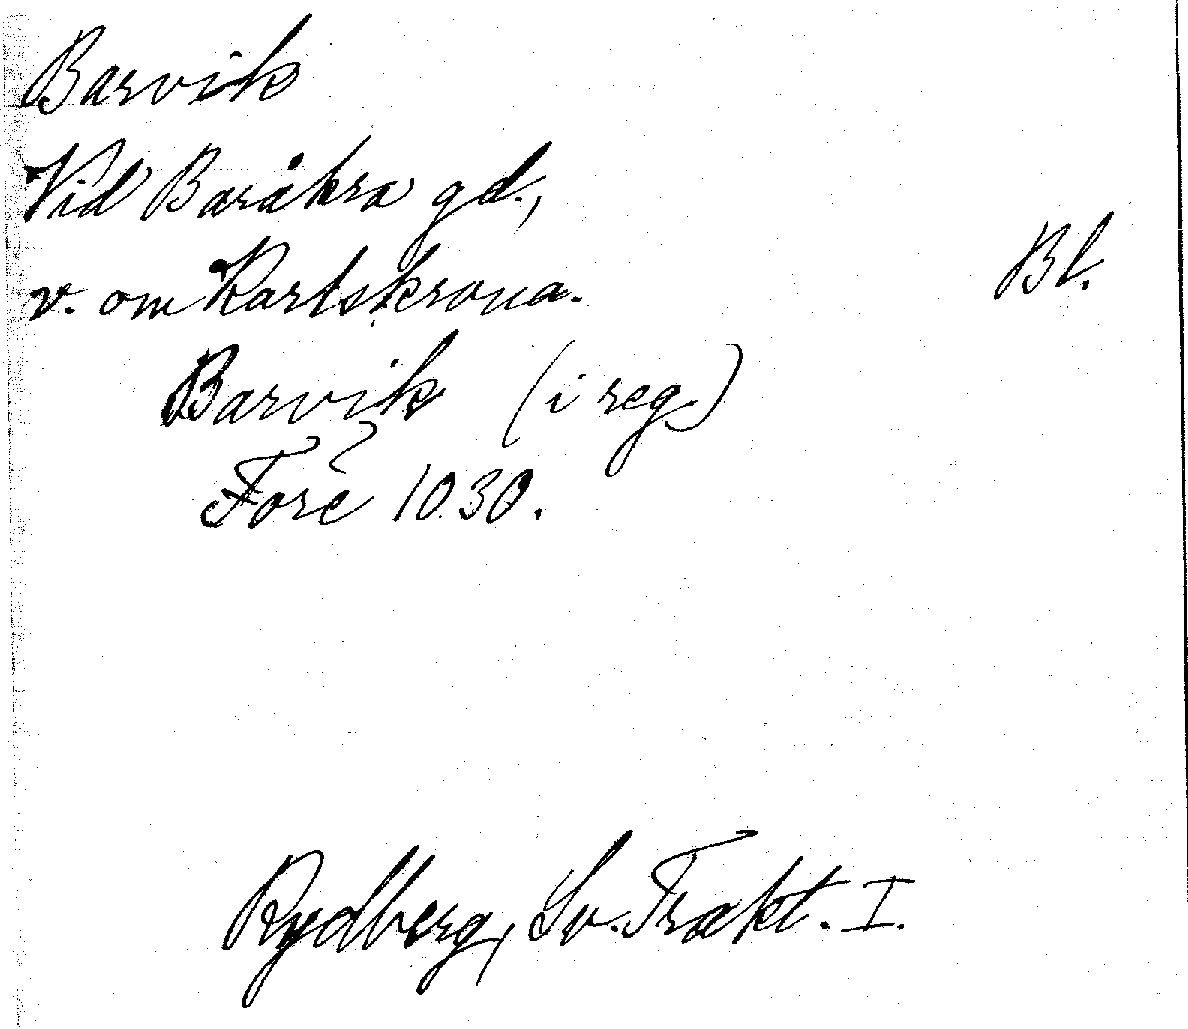 Barvik
Vid Baråkra gd.,
v. om Karlskrona.
Bl.
Barvik (i reg.)
Före 1030.
Rydberg, Sv. Trakt. I.